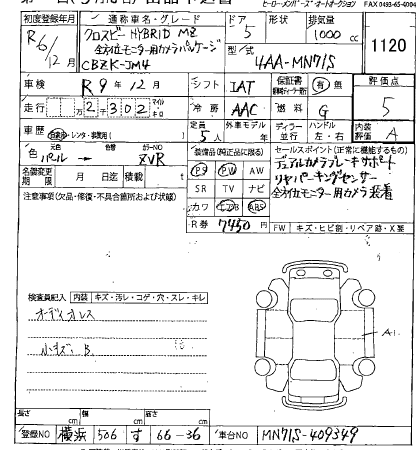 ヒーローメンバーズ・オートオークション FAX 0493-65-4004
初度登録年月 通称車名・グレード ドア 形状 排気量
R6/12月 クロスビー HYBRID MZ 5 1000 cc
全方位モニター用カメラパッケージ 型式 1120
CBZK-JM4 4AA-MN71S
車検 R 9年 12月 シフト IAT 保証書 有・無 評価点
走行 万 2千 302 冷房 AAC 燃料 G 5
車歴 自家用・レンタ・事業用( ) 定員 5人 外車モデル年 ディーラー・並行 ハンドル 左・右 内装評価 A
色 元色 パール → 色替 カラーNO ZVR
装備品(純正品に限る) セールスポイント(正常に機能するもの)
PS PW AW デュアルカメラブレーキサポート
名義変更期限 月 日迄 積載 SR TV ナビ リヤパーキングセンサー
注意事項(欠品・修復・不具合箇所および状態) カワ エアB ABS 全方位モニター用カメラ装着
R券 7450 FW キズ・ヒビ割・リペア跡・X要
検査員記入 内装 キズ・汚レ・コゲ・穴・スレ・キレ
オーディオレス
小キズ B
A1
長さ cm 幅 cm 高さ cm
登録NO 横浜 506 す 66-36 車台NO MN71S-409349